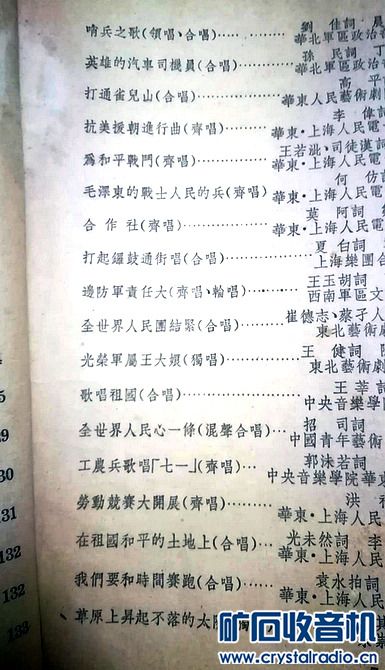 哨兵之歌(領唱、合唱)………… 劉佳詞
華北軍區政治
英雄的汽車司機員(合唱)………… 孫民詞
華北軍區政治
打通雀兒山(合唱)………… 高平
華東人民藝術劇
抗美援朝進行曲(齊唱)………… 李偉
華東·上海人民電
爲和平戰鬥(齊唱)………… 王若泚、司徒漢詞
華東·上海人民電
毛澤東的戰士人民的兵(齊唱) 何仿
華東·上海人民電
合作社(齊唱)………… 莫阿
華東·上海人民電
打起鑼鼓通街唱(合唱)………… 夏白
上海樂團合
邊防軍責任大(齊唱、輪唱)………… 王玉胡詞
西南軍區文
全世界人民團結緊(合唱)………… 崔德志、蔡孑人
東北藝術劇
光榮軍屬王大娘(獨唱)………… 王健詞
東北藝術劇
歌唱祖國(合唱)………… 王莘
中央音樂學院
全世界人民心一條(混聲合唱)… 招司詞
中國青年藝術
工農兵歌唱「七一」(齊唱)… 郭沫若詞
中央音樂學院華東
勞動競賽大開展(齊唱)………… 洪
華東·上海人民
在祖國和平的土地上(合唱)… 光未然詞 李
華東·上海人民電
我們要和時間賽跑(合唱)… 袁水拍詞
華東·上海人民
草原上昇起不落的太陽
29
130
131
132
132
133
矿石收音机
www.crystalradio.cn